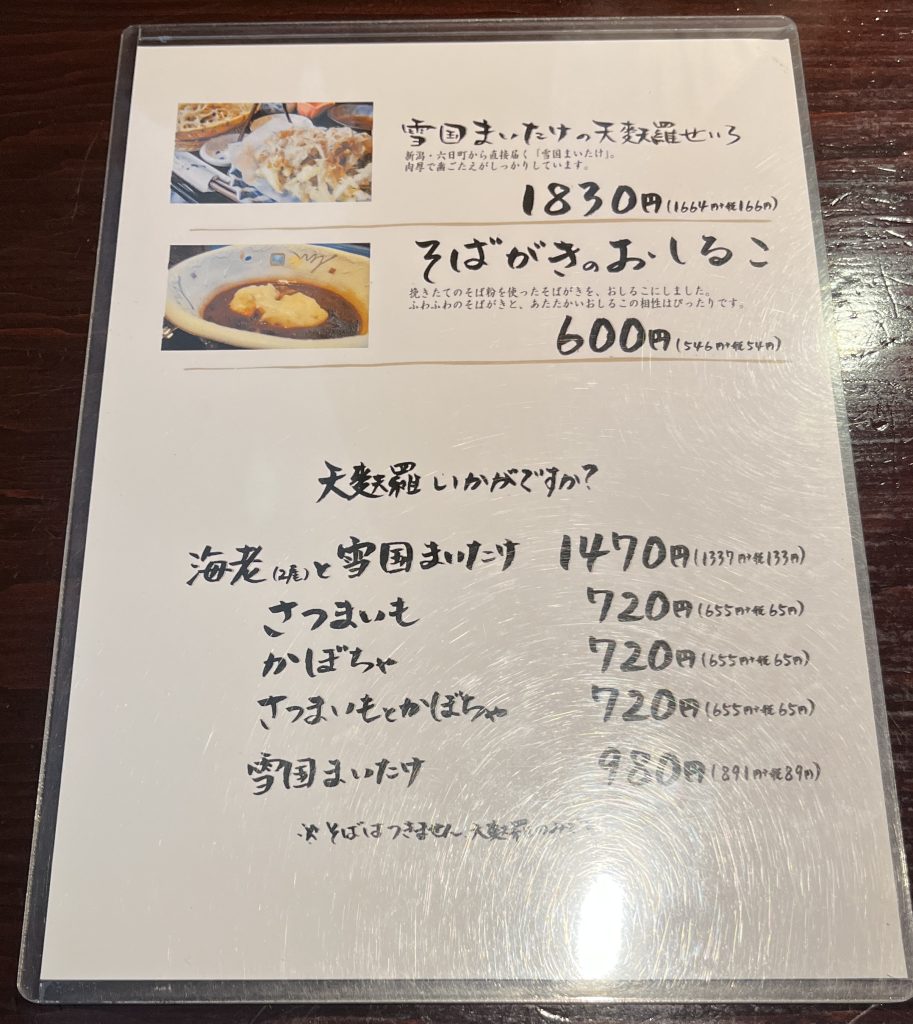 雪国まいたけの天麩羅せいろ
新潟・六日町から直接届く「雪国まいたけ」。
肉厚で歯ごたえがしっかりしています。
1830円(1664円+税166円)
そばがきのおしるこ
挽きたてのそば粉を使ったそばがきを、おしるこにしました。
ふわふわのそばがきと、あたたかいおしるこの相性はぴったりです。
600円(546円+税54円)
天麩羅いかがですか?
海老(2尾)と雪国まいたけ 1470円(1337円+税133円)
さつまいも 720円(655円+税65円)
かぼちゃ 720円(655円+税65円)
さつまいもとかぼちゃ 720円(655円+税65円)
雪国まいたけ 980円(891円+税89円)
※そばはつきません 天麩羅のみ